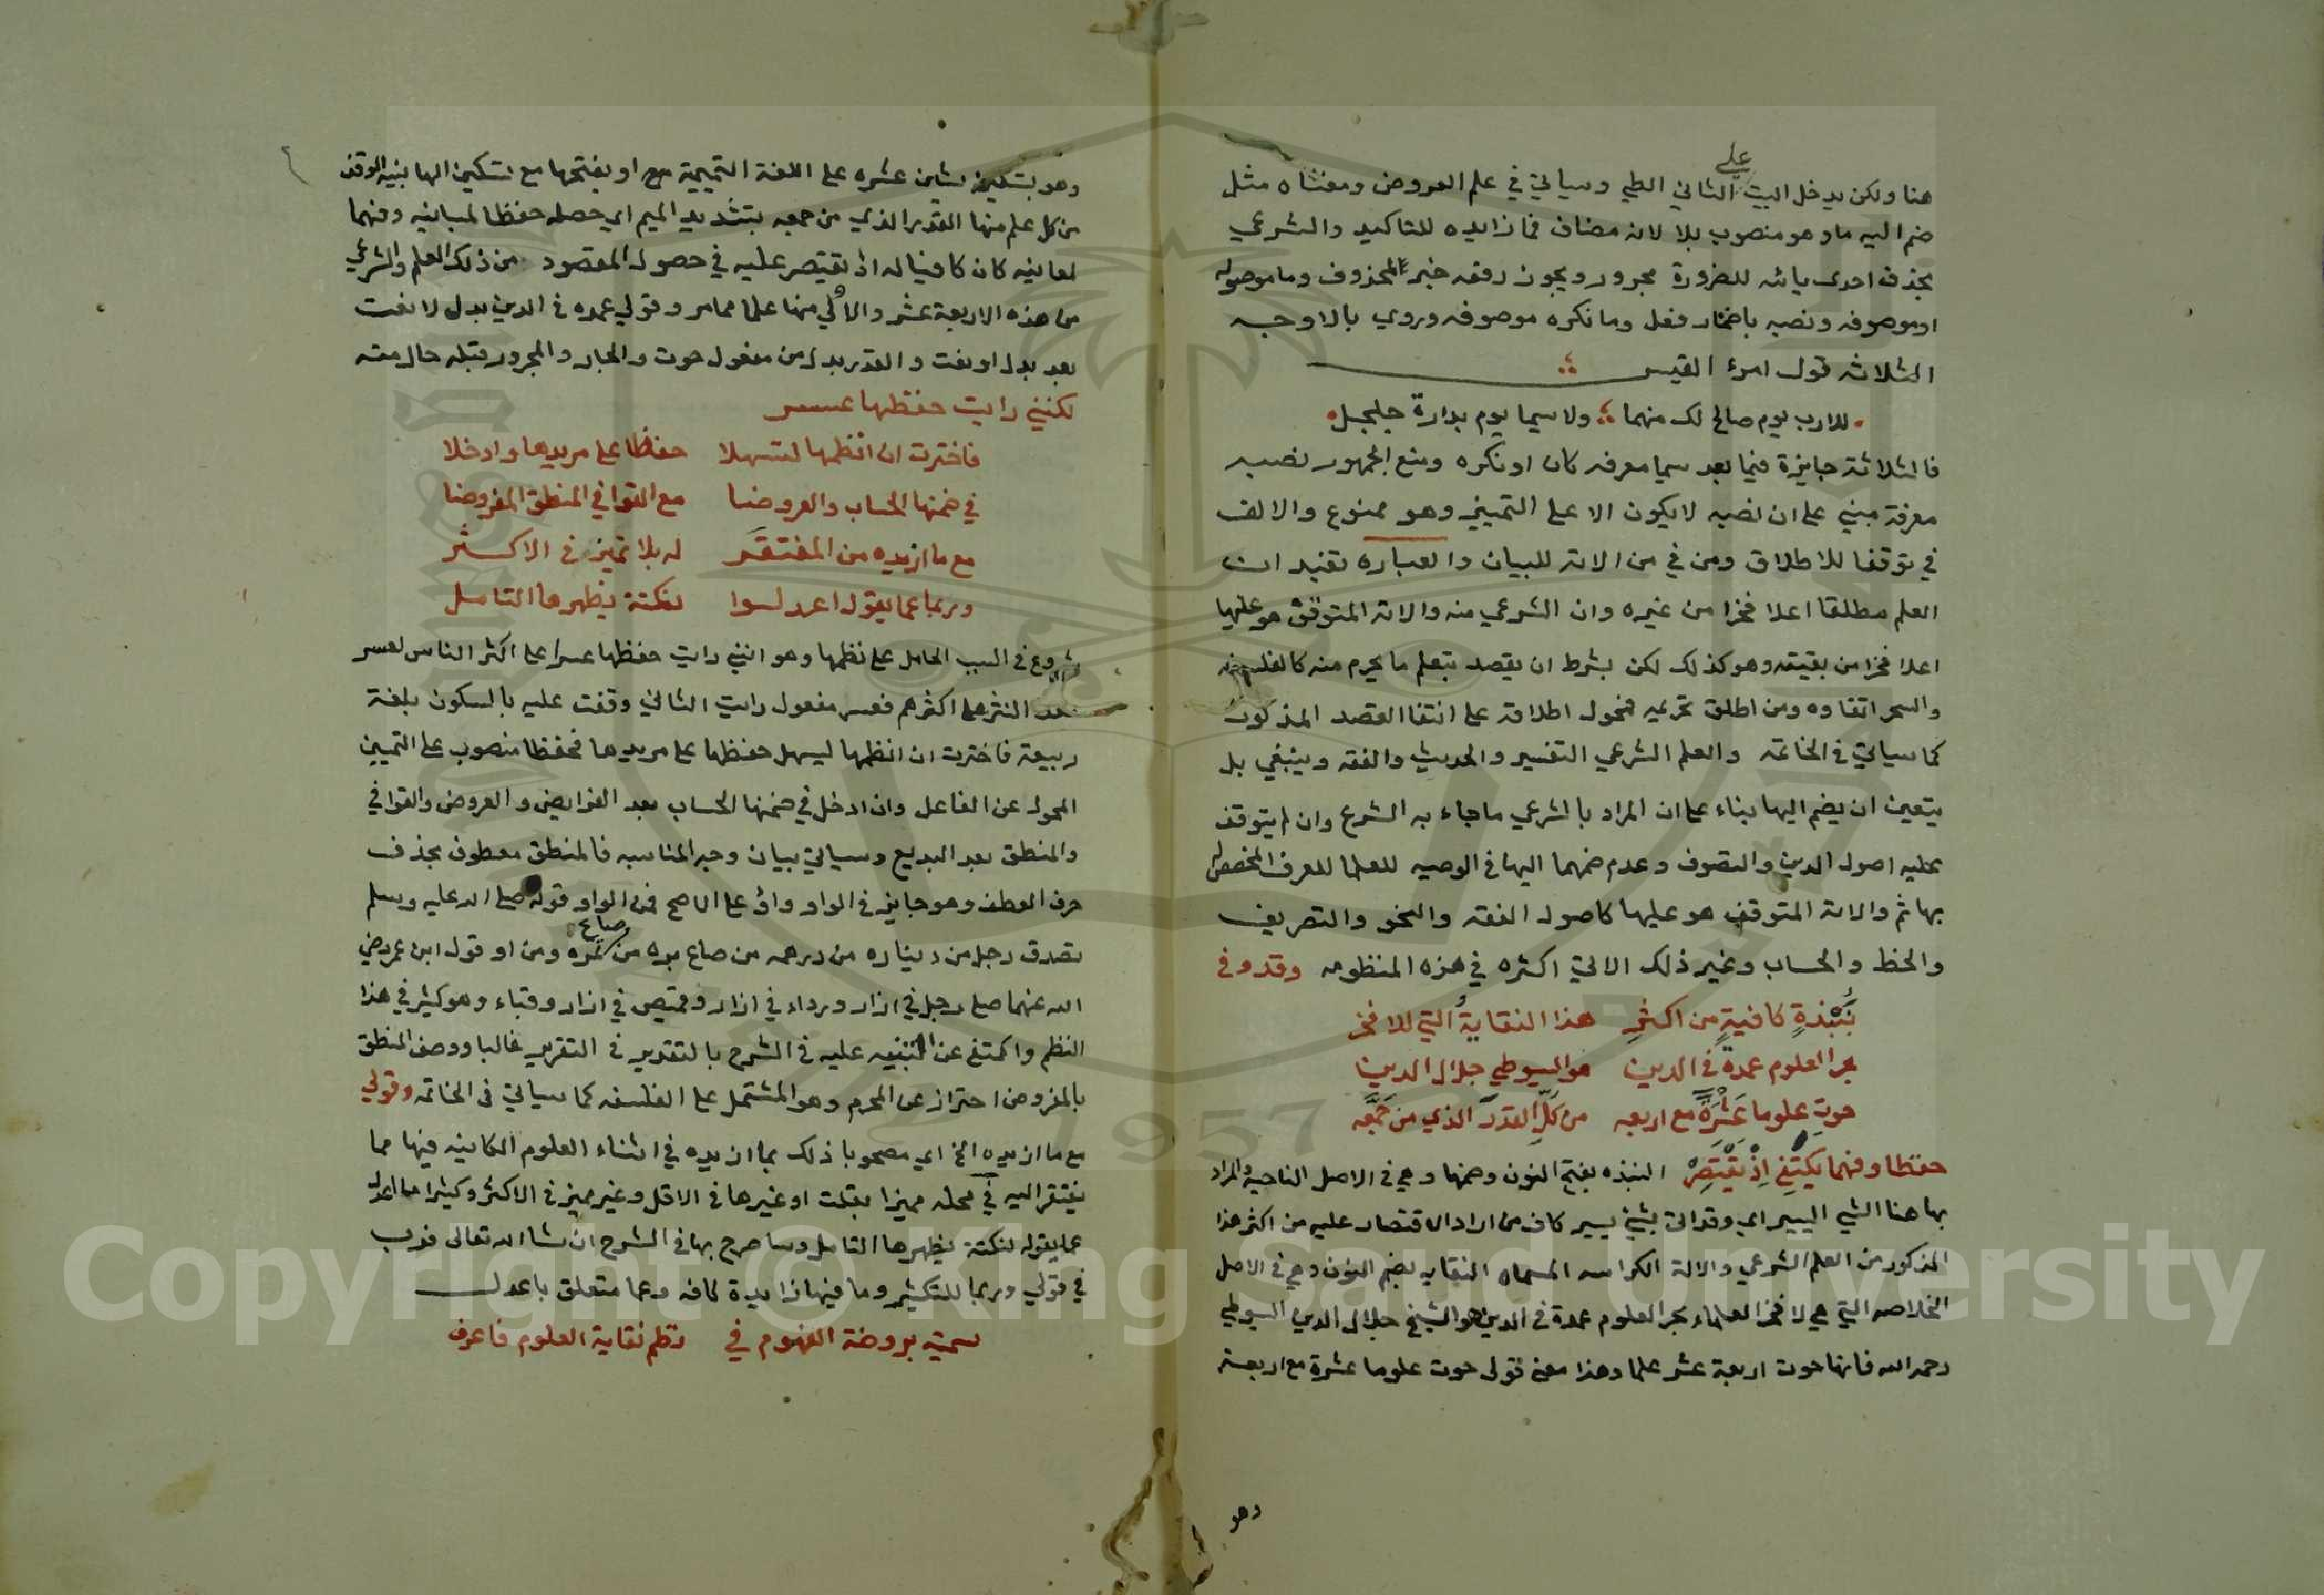 على
هنا ولكن يدخل البيت الثاني الطي وسياتي في علم العروض ومنشاه مثل
ضم اليه ما وهو منصوب بلا لانه مضاف فما زايده للتاكيد والشرعي
بحذف احدى يائه للضرورة مجرور ويجوز رفعه خبر المحذوف وما موصوله
او موصوفه ونصبه باضمار فعل وما نكره موصوفه وروي بالاوجه
الثلاثه قول امرئ القيس
للارب يوم صالح لك منهما ؛ ولا سيما يوم بدارة جلجل
فالثلاثة جايزة فيما بعد سيما معرفه كان او نكره ومنع الجمهور نصبه
معرفة مبني على ان نصبه لا يكون الا على التمييز وهو ممنوع والالف
في توقفا للاطلاق ومن في من الاته للبيان والعباره تفيد ان
العلم مطلقا اعلا فخرا من غيره وان الشرعي منه والاته المتوقف هو عليها
اعلا فخرا من بقيته وهو كذلك لكن بشرط ان يقصد بتعلم ما يحرم منه كالفلسفه
والسحر اتقاوه ومن اطلق تحريمه فمحول اطلاقه على انتفا القصد المذكور
كما سياتي في الخاتمه والعلم الشرعي التفسير والحديث والفقه وينبغي بل
يتعين ان يضم اليها بناء على ان المراد بالشرعي ما جاء به الشرع وان لم يتوقف
عليه اصول الدين والتصوف وعدم ضمهما اليها في الوصيه للعلما للعرف المخصص
بها ثم والاته المتوقف هو عليها كاصول الفقه والنحو والتصريف
والخط والحساب وغير ذلك الاتي اكثره في هذه المنظومه وقد وفى
بنبذة كافية من اكثر هذا النقاية التي للافخر
بحر العلوم عمدة في الدين هو السيوطي جلال الدين
حوت علوما عشرة مع اربعه من كل القدر الذي من جمعه
حفظا وفهما يكتفي اذ يقتصر النبذه بفتح النون وضمها وهي في الاصل الناحيه والمراد
بها هنا الشي اليسير اي وقد اتى بشي يسير كاف من اراد الاقتصار عليه من اكثر هذا
المذكور من العلم الشرعي والالة الكراسه المسماه النقايه بضم النون وهي في الاصل
الخلاصه التي هي لافخر العلماء بحر العلوم عمدة في الدين هو الشيخ جلال الدين السيوطي
رحمه الله فانها حوت اربعة عشر علما وهذا معنى قولي حوت علوما عشرة مع اربعة
وهو
وهو بتسكين شين عشره على اللغة التميمية مع او بفتحها مع تسكين الها بنية الوقف
من كل علم منها القدر الذي من جمعه بتشديد الميم اي حصله حفظا لمبانيه وفهما
لمعانيه كان كافيا له اذ يقتصر عليه في حصول المقصود من ذلك العلم والشرعي
من هذه الاربعة عشر والالي منها علما مما مر وقولي عمده في الدين بدل لا نعت
بعد بدل او نعت والقدر بدل من مفعول حوت والجار والمجرور قبله حال منه
لكنني رايت حفظها عسر
فاخترت ان انظمها لتسهلا حفظا على مريدها وادخلا
في ضمنها الحساب والعروضا مع القوافي المنطق المفروضا
مع ما ازيده من المفتقر له بلا تمييز في الاكثر
وربما عما يقول اعدل سوا لنكتة يظهرها التامل
شروع في السبب الحامل على نظمها وهو انني رايت حفظها عسرا على اكثر الناس لعسر
حفظ النثر على اكثرهم فعسر مفعول رايت الثاني وقفت عليه بالسكون بلغة
ربيعة فاخترت ان انظمها ليسهل حفظها على مريدها فحفظا منصوب على التمييز
المحول عن الفاعل وان ادخل في ضمنها الحساب بعد الفرايض والعروض والقوافي
والمنطق بعد البديع وسياتي بيان وجه المناسبه فالمنطق معطوف بحذف
حرف العطف وهو جايز في الواو واو على الاصح فمن الواو قوله صلى الله عليه وسلم
تصدق رجل من ديناره من درهمه من صاع بره من صاع تمره ومن او قول ابن عمر رضي
الله عنهما صلى رجل في ازار ورداء في ازار وقميص في ازار وقباء وهو كثير في هذا
النظم واكتفى عن التنبيه عليه في الشرح بالتقدير في التقرير غالبا ووصف المنطق
بالمفروض احتراز عن المحرم وهو المشتمل على الفلسفه كما سياتي في الخاتمه وقولي
مع ما ازيده الخ اي مصحوبا ذلك بما ازيده في اثناء العلوم الكاينه فيها مما
يفتقر اليه في محله مميزا بقلت او غيرها في الاقل وغير مميز في الاكثر وكثيرا ما اعدل
عما يقوله لنكتة يظهرها التامل وساصرح بها في الشرح ان شا الله تعالى فرب
في قولي وربما للتكثير وما فيها زايدة كافه وعما متعلق باعدل
سميته بروضة الفهوم في نظم نقاية العلوم فاعرف
Copyright © King Saud University
1957